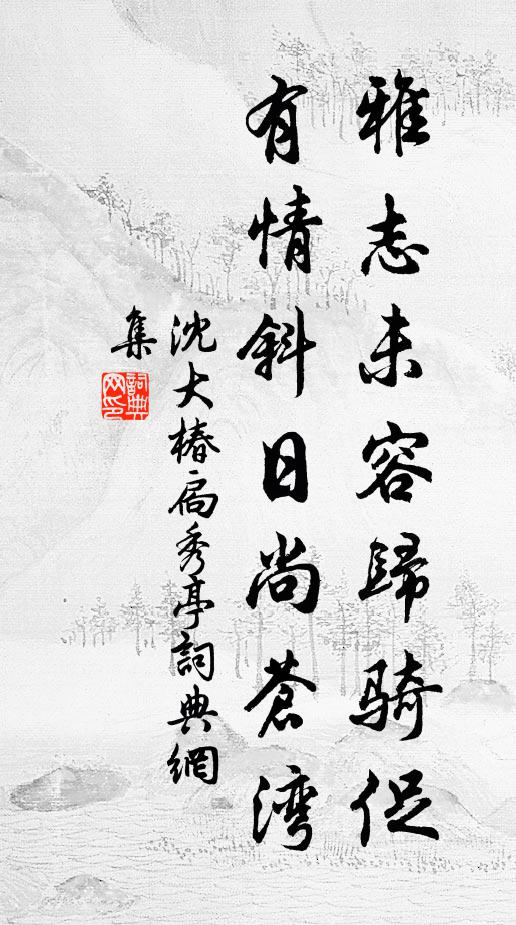 雅志未容歸騎促
有情斜日尚蒼灣
沈大椿扃秀亭詞典網
集
詞典
网印